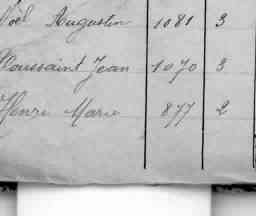 Noël Augustin 1081 3
Toussaint Jean 1070 3
Henri Marie 877 2